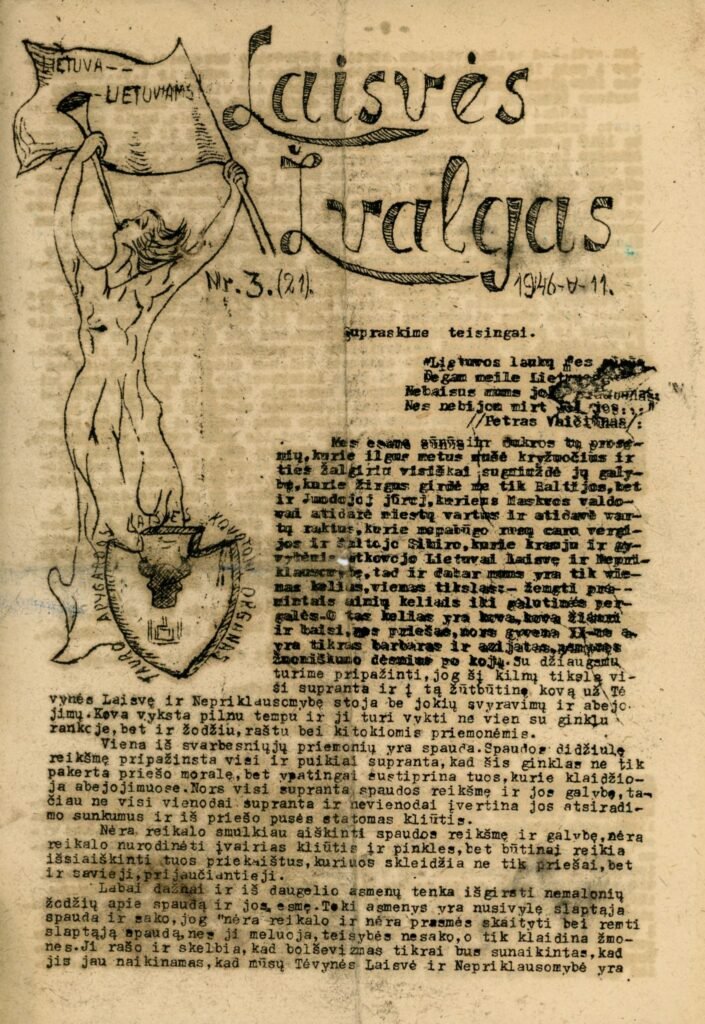 LIETUVA--
-LIETUVIAMS
Laisvės
Žvalgas
Nr. 3. (21).
1946-V-11.
Supraskime teisingai.
"Lietuvos laukų mes
Degam meile
Nebaisus mums jo
Nes nebijom mirt
/Petras Vaičiūnas/.
Mes esame sūnūs ir dukros tų prose-
nių, kurie ilgus metus mušė kryžiuočius ir
ties Žalgiriu visiškai sugniuždė jų galy-
bę, kurie žirgus girdė ne tik Baltijos, bet
ir Juodojoj jūroj, kuriems Maskvos valdo-
vai atidarė miestų vartus ir atidavė var-
tų raktus, kurie nepabūgo rusų caro vergi-
jos ir šaltojo Sibiro, kurie krauju ir gy-
vybėmis atkovojo Lietuvai Laisvę ir Nepri-
klausomybę, tad ir dabar mums yra tik vie-
nas kelias, vienas tikslas:- žengti pra-
mintais keliais iki galutinės per-
galės. O tas kelias yra kova, kova žiauri
ir baisi, nes priešas, nors gyvena XX-me a.
yra tikras barbaras ir azijatas,
žmoniškumo dėsnius po kojų. Su džiaugsmu
turime pripažinti, jog šį kilnų tikslą vi-
si supranta ir į tą žūtbūtinę kovą už Tė
vynės Laisvę ir Nepriklausomybę stoja be jokių svyravimų ir abejo-
jimų. Kova vyksta pilnu tempu ir ji turi vykti ne vien su ginklu
rankoje, bet ir žodžiu, raštu bei kitokiomis priemonėmis.
Viena iš svarbesniųjų priemonių yra spauda. Spaudos didžiulę
reikšmę pripažinsta visi ir puikiai supranta, kad šis ginklas ne tik
pakerta priešo moralę, bet ypatingai sustiprina tuos, kurie klaidžio-
ja abejojimuose. Nors visi supranta spaudos reikšmę ir jos galybę, ta-
čiau ne visi vienodai supranta ir nevienodai įvertina jos atsiradi-
mo sunkumus ir iš priešo pusės statomas kliūtis.
Nėra reikalo smulkiau aiškinti spaudos reikšmę ir galybę, nėra
reikalo nurodinėti įvairias kliūtis ir pinkles, bet būtinai reikia
išsiaiškinti tuos priekaištus, kuriuos skleidžia ne tik priešai, bet
ir savieji, prijaučiantieji.
Labai dažnai ir iš daugelio asmenų tenka išgirsti nemalonių
žodžių apie spaudą ir jos esmę. Toki asmenys yra nusivylę slaptąja
spauda ir sako, jog "nėra reikalo ir nėra prasmės skaityti bei remti
slaptąją spaudą, nes ji meluoja, teisybės nesako, o tik klaidina žmo-
nes. Ji rašo ir skelbia, kad bolševizmas tikrai bus sunaikintas, kad
jis jau naikinamas, kad mūsų Tėvynės Laisvė ir Nepriklausomybė yra
LAISVĖS KOVOTOJŲ ORGANAS
TAURO APYGARDOS